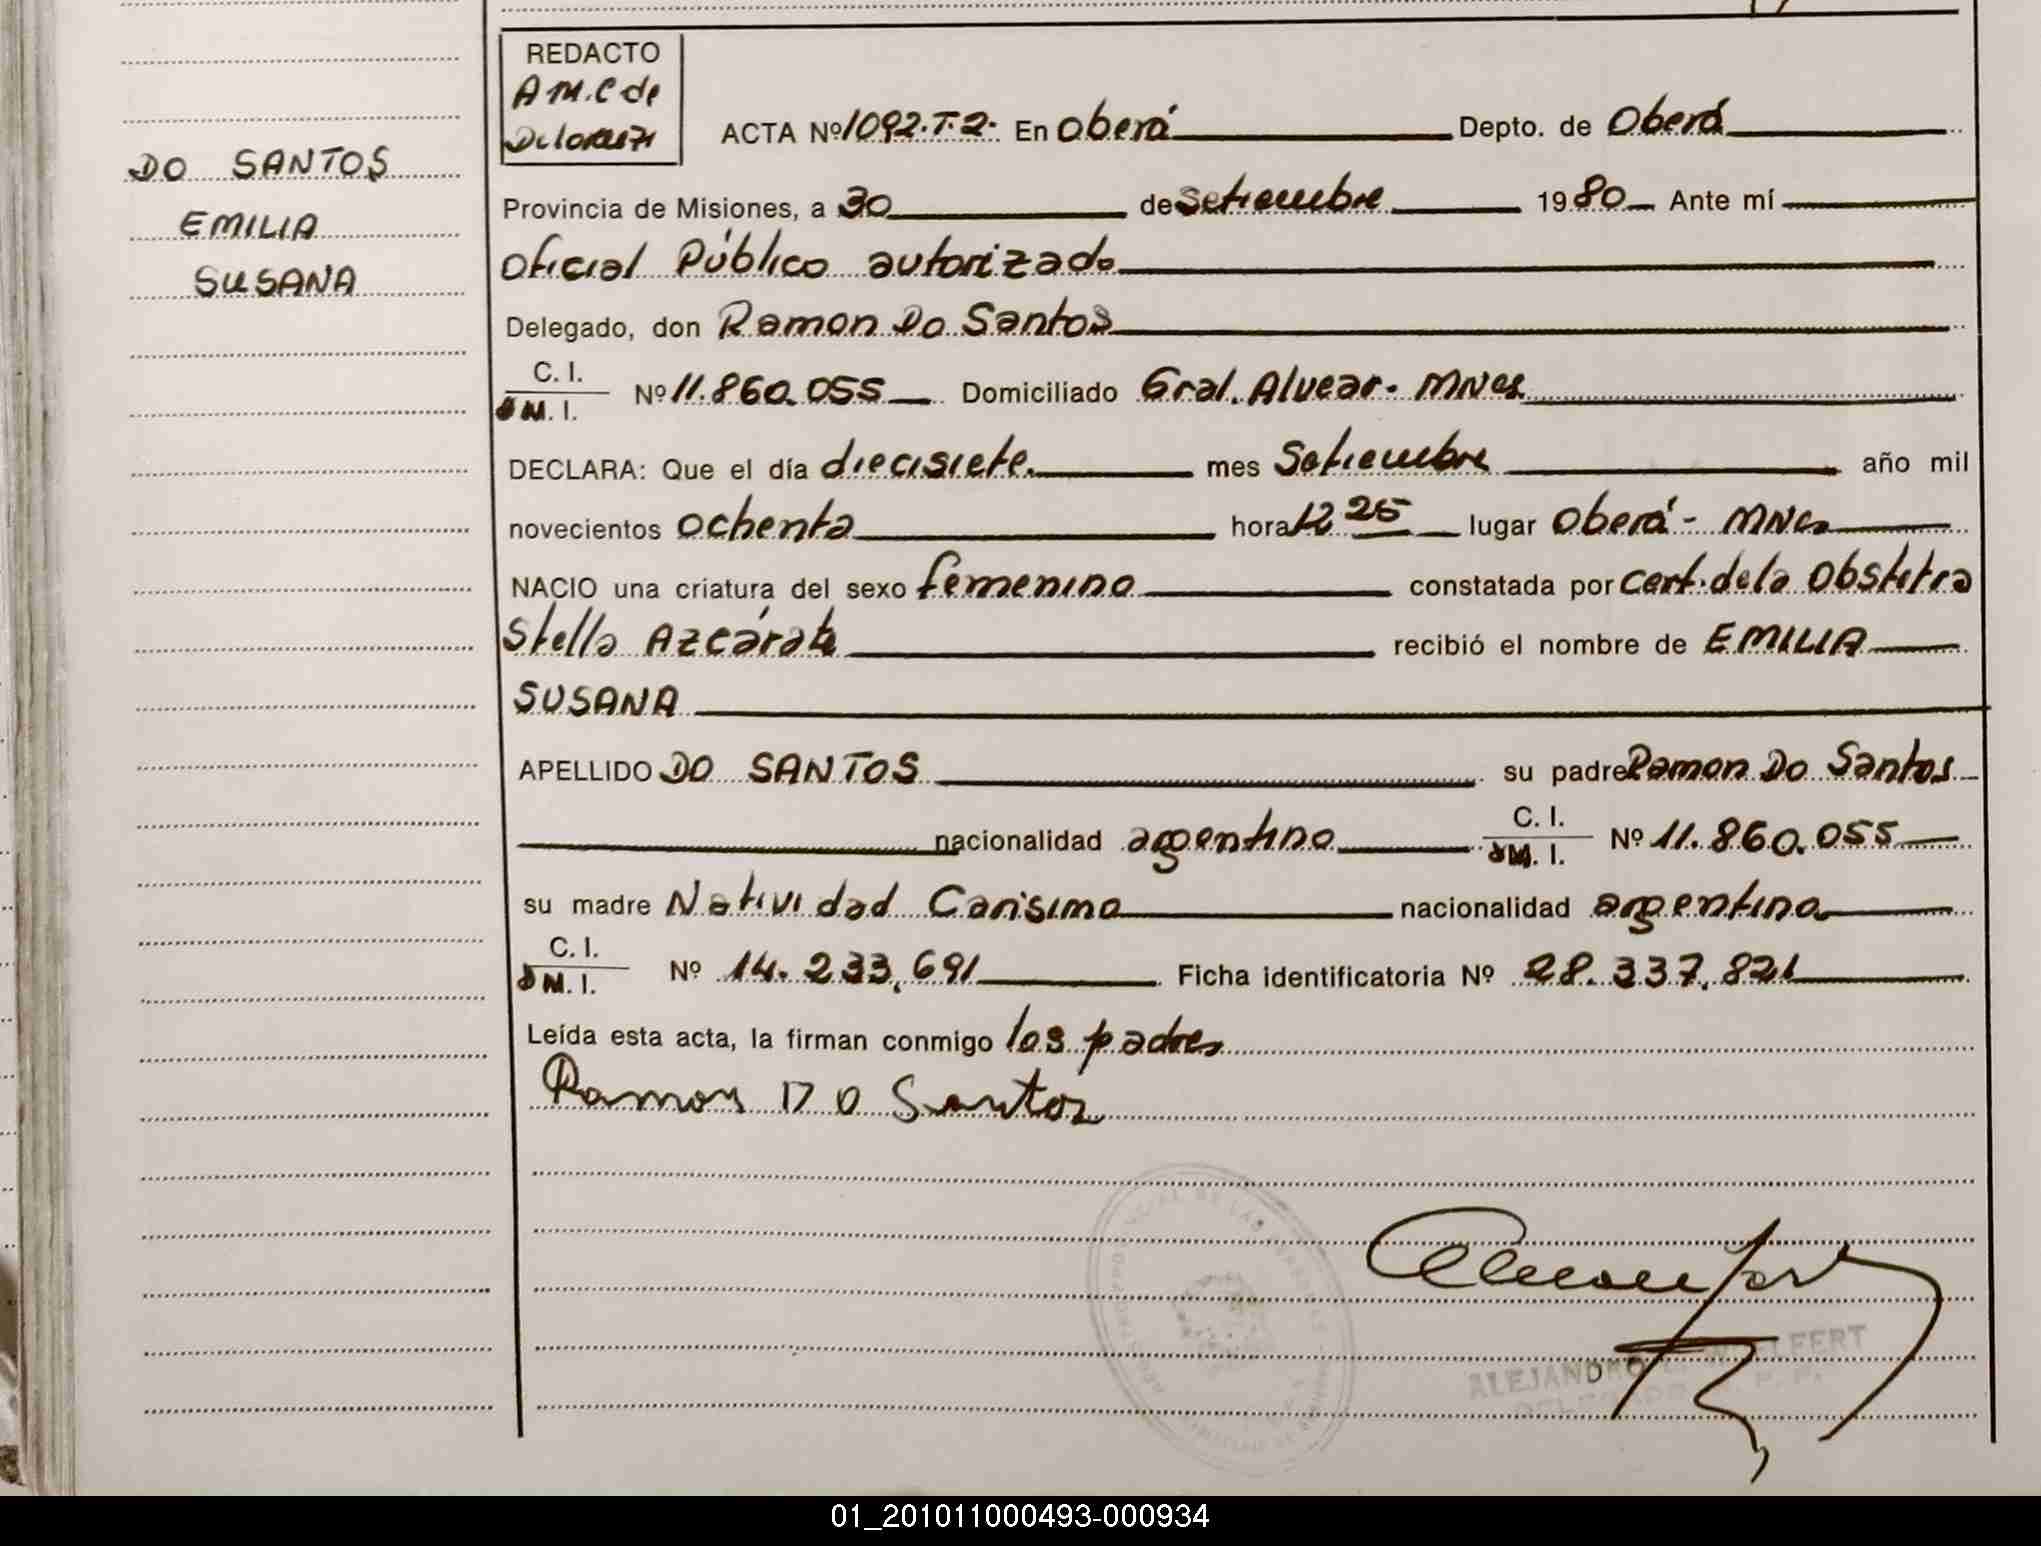 DO SANTOS
EMILIA
SUSANA
REDACTO
A M. C de
ACTA Nº 1092.T.2. En Oberá Depto. de Oberá
Provincia de Misiones, a 30 de Setiembre 1980 Ante mí
Oficial Público autorizado
Delegado, don Ramon Do Santos
C. I.
M. I. Nº 11.860.055 Domiciliado Gral. Alvear - MNes
DECLARA: Que el día diecisiete mes Setiembre año mil
novecientos ochenta hora 12 25 lugar Oberá - MNes
NACIO una criatura del sexo femenino constatada por cert. de la Obstetra
Stella Azcárate recibió el nombre de EMILIA
SUSANA
APELLIDO DO SANTOS su padre Ramon Do Santos
nacionalidad argentino C. I.
M. I. Nº 11.860.055
su madre Natividad Carisimo nacionalidad argentina
C. I.
M. I. Nº 14.233.691 Ficha identificatoria Nº 28.337.821
Leída esta acta, la firman conmigo los padres
Ramon DO Santos
ALEJANDRO
01_201011000493-000934